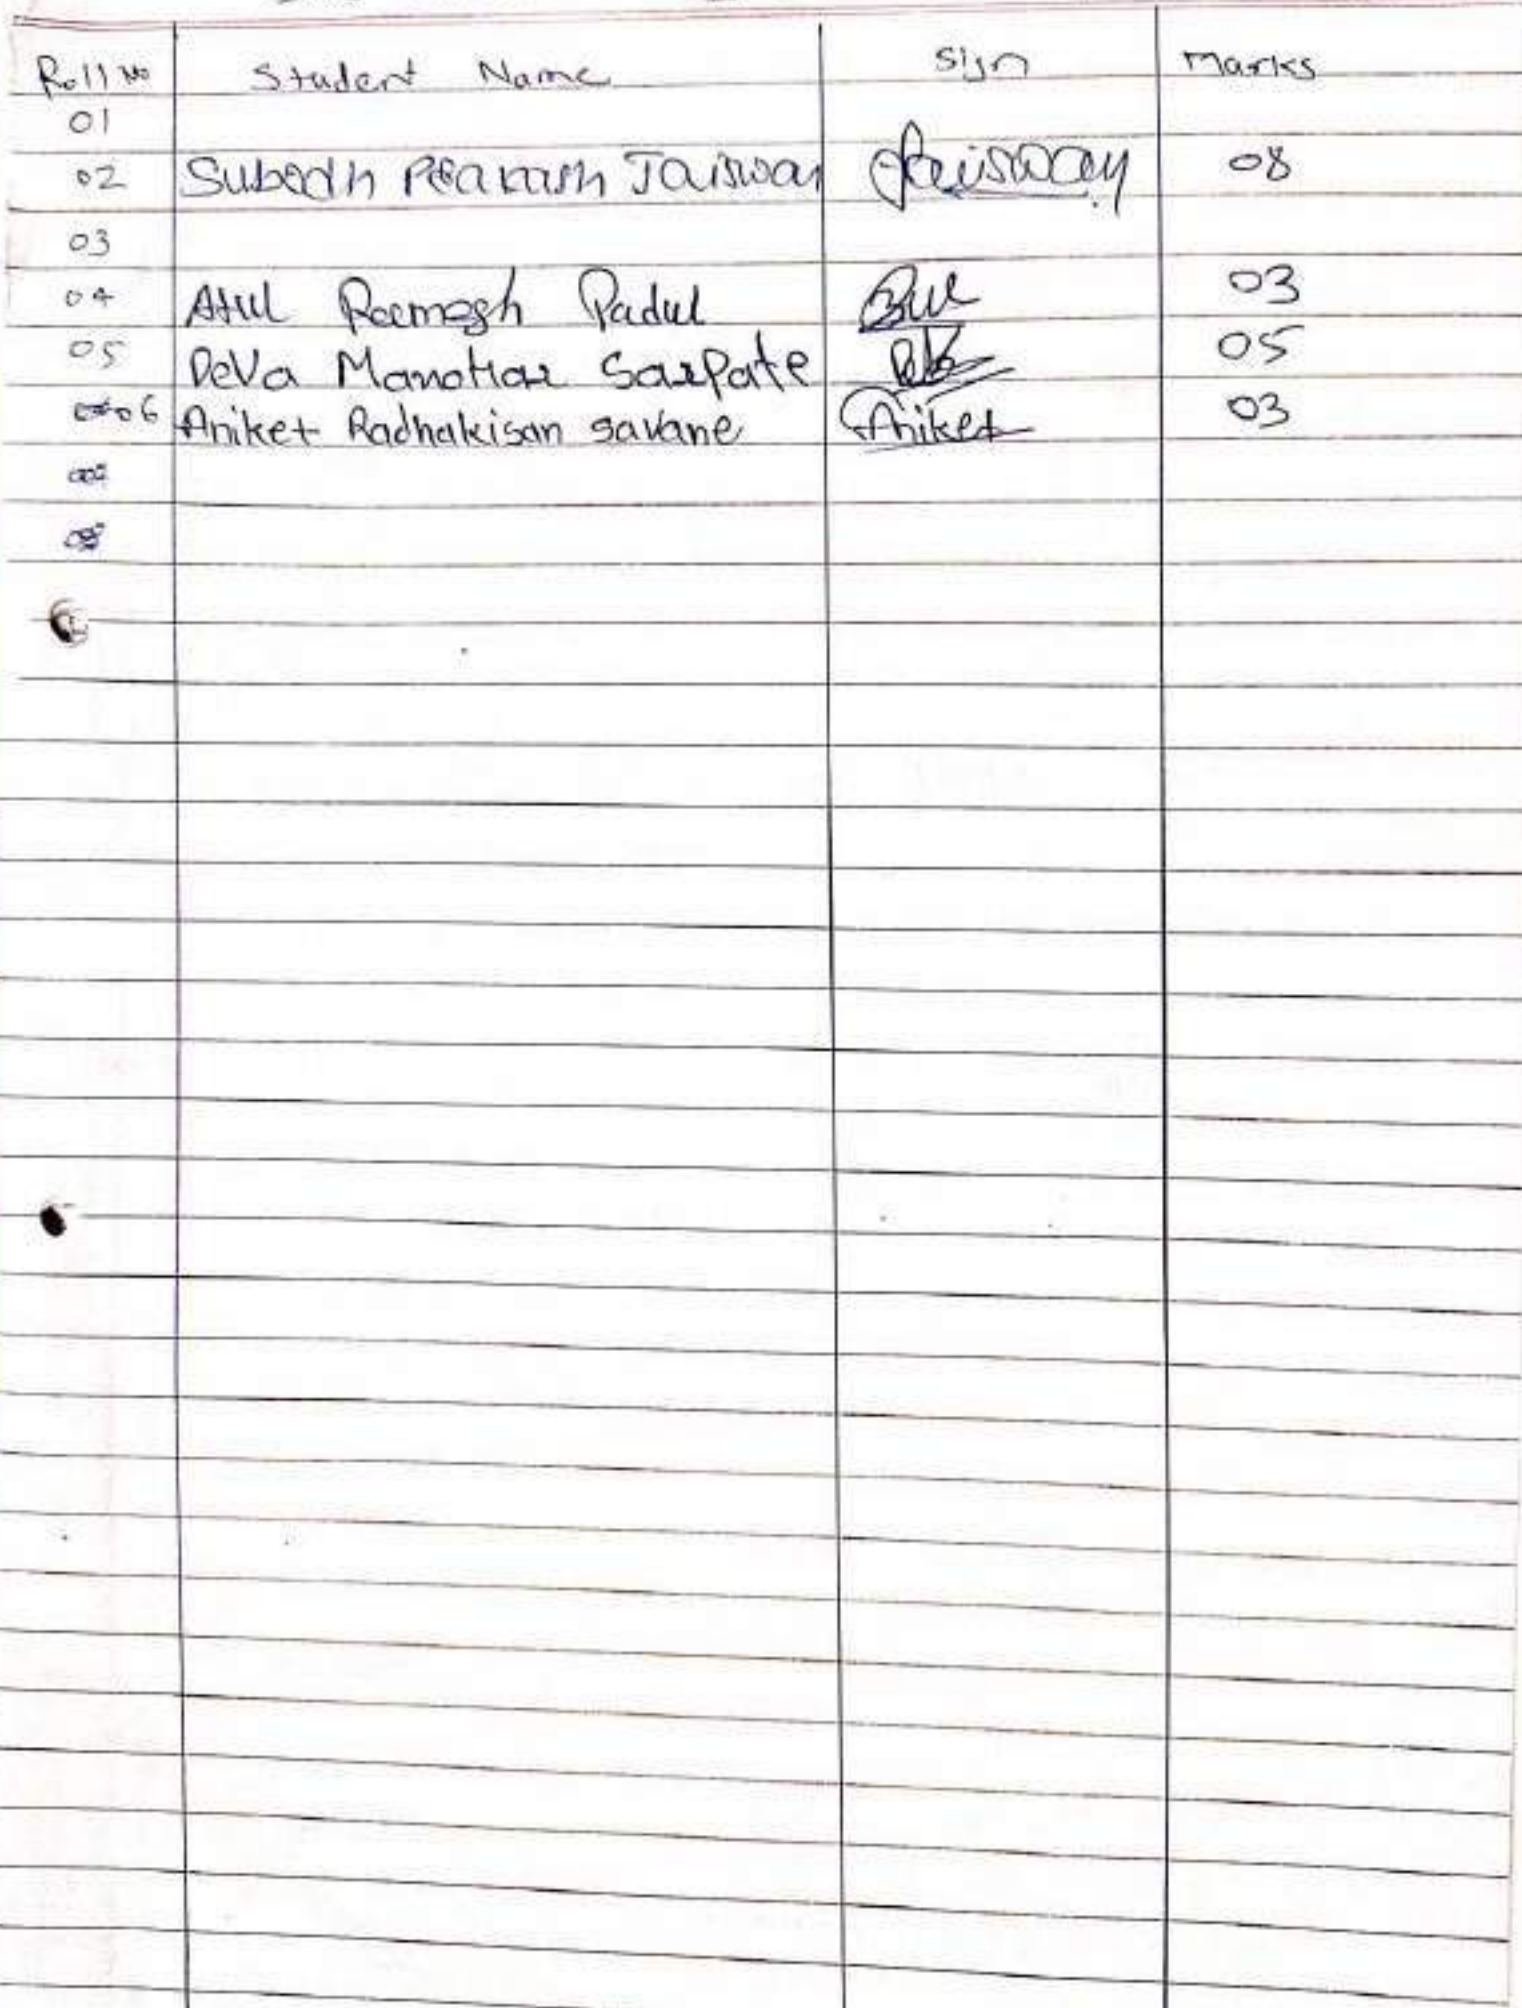 Roll No Student Name Sign Marks
01
02 Subodh Prakash Jaiswal Jaiswal 08
03
04 Atul Ramesh Padul 03
05 Deva Manohar Sarpate 05
06 Aniket Radhakisan savane Aniket 03